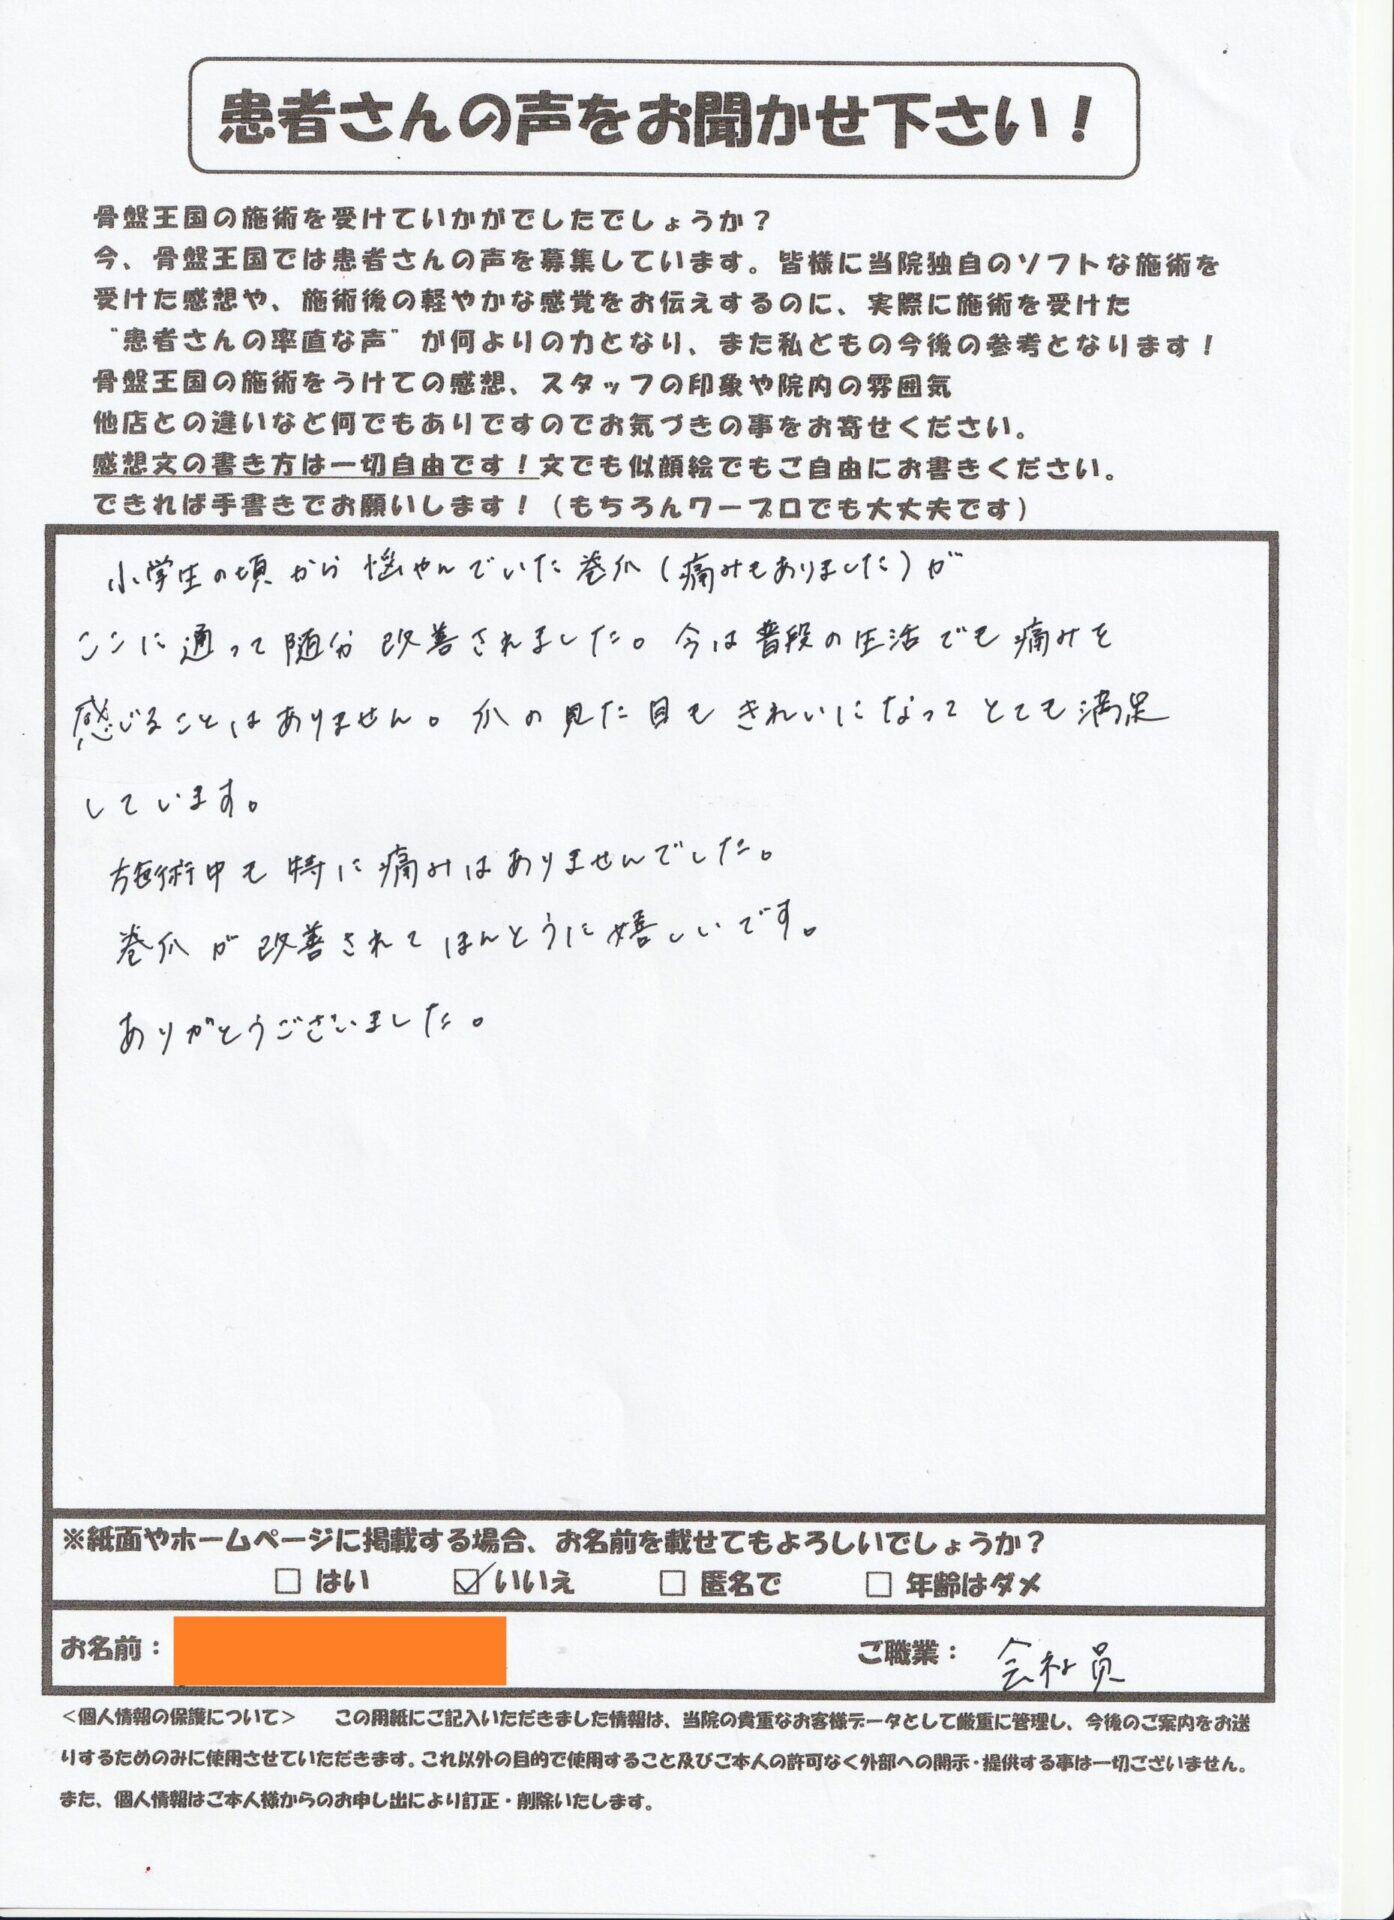 患者さんの声をお聞かせ下さい！
骨盤王国の施術を受けていかがでしたでしょうか？
今、骨盤王国では患者さんの声を募集しています。皆様に当院独自のソフトな施術を
受けた感想や、施術後の軽やかな感覚をお伝えするのに、実際に施術を受けた
"患者さんの率直な声"が何よりの力となり、また私どもの今後の参考となります！
骨盤王国の施術をうけての感想、スタッフの印象や院内の雰囲気
他店との違いなど何でもありですのでお気づきの事をお寄せください。
感想文の書き方は一切自由です！文でも似顔絵でもご自由にお書きください。
できれば手書きでお願いします！（もちろんワープロでも大丈夫です）
小学生の頃から悩やんでいた巻爪(痛みもありました)が
ここに通って随分改善されました。今は普段の生活でも痛みを
感じることはありません。爪の見た目もきれいになってとても満足
しています。
施術中も特に痛みはありませんでした。
巻爪が改善されてほんとうに嬉しいです。
ありがとうございました。
※紙面やホームページに掲載する場合、お名前を載せてもよろしいでしょうか？
□ はい ☑ いいえ □ 匿名で □ 年齢はダメ
お名前： ご職業： 会社員
＜個人情報の保護について＞ この用紙にご記入いただきました情報は、当院の貴重なお客様データとして厳重に管理し、今後のご案内をお送
りするためのみに使用させていただきます。これ以外の目的で使用すること及びご本人の許可なく外部への開示・提供する事は一切ございません。
また、個人情報はご本人様からのお申し出により訂正・削除いたします。